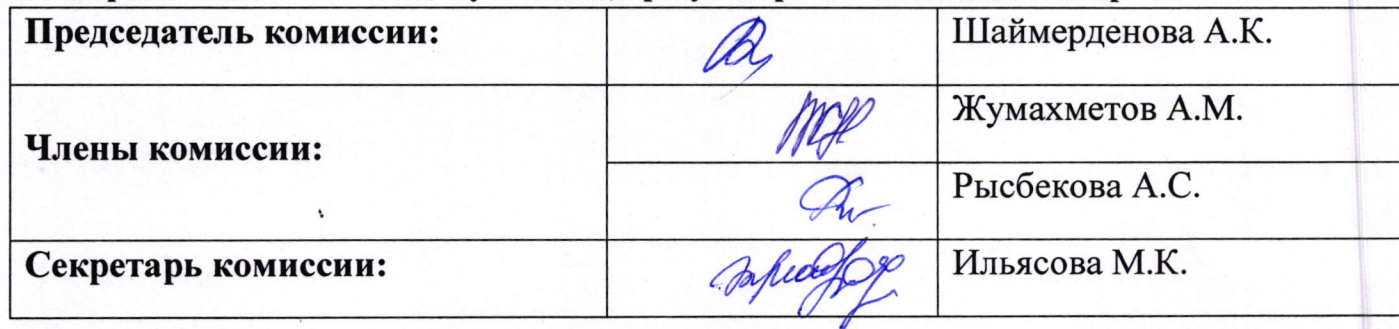 Председатель комиссии:
Шаймерденова А.К.
Члены комиссии:
Жумахметов А.М.
Рысбекова А.С.
Секретарь комиссии:
Ильясова М.К.